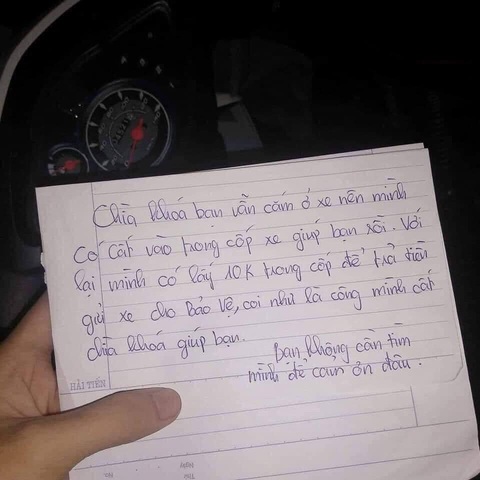 Chìa khoá bạn vẫn cắm ở xe nên mình
có cất vào trong cốp xe giúp bạn rồi. Với
lại mình có lấy 10K trong cốp để trả tiền
gửi xe cho Bảo Vệ, coi như là công mình cất
chìa khoá giúp bạn.
Bạn không cần tìm
mình để cảm ơn đâu.
HẢI TIẾN
Thứ
Ngày
No.